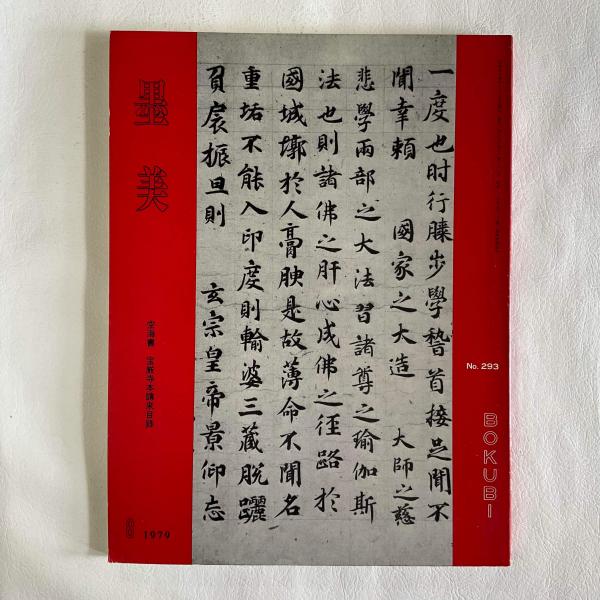 墨美
一度也时行膝步學䭫首接足聞不
聞幸頼 國家之大造 大師之慈
悲學兩部之大法習諸尊之瑜伽斯
法也則諸佛之肝心成佛之徑路於
國城墎於人膏腴是故薄命不聞名
重垢不能入印度則輸婆三蔵脱躧
負扆振旦則 玄宗皇帝景仰忘
空海書 宝厳寺本請来目録
No. 293
BOKUBI
6 1979